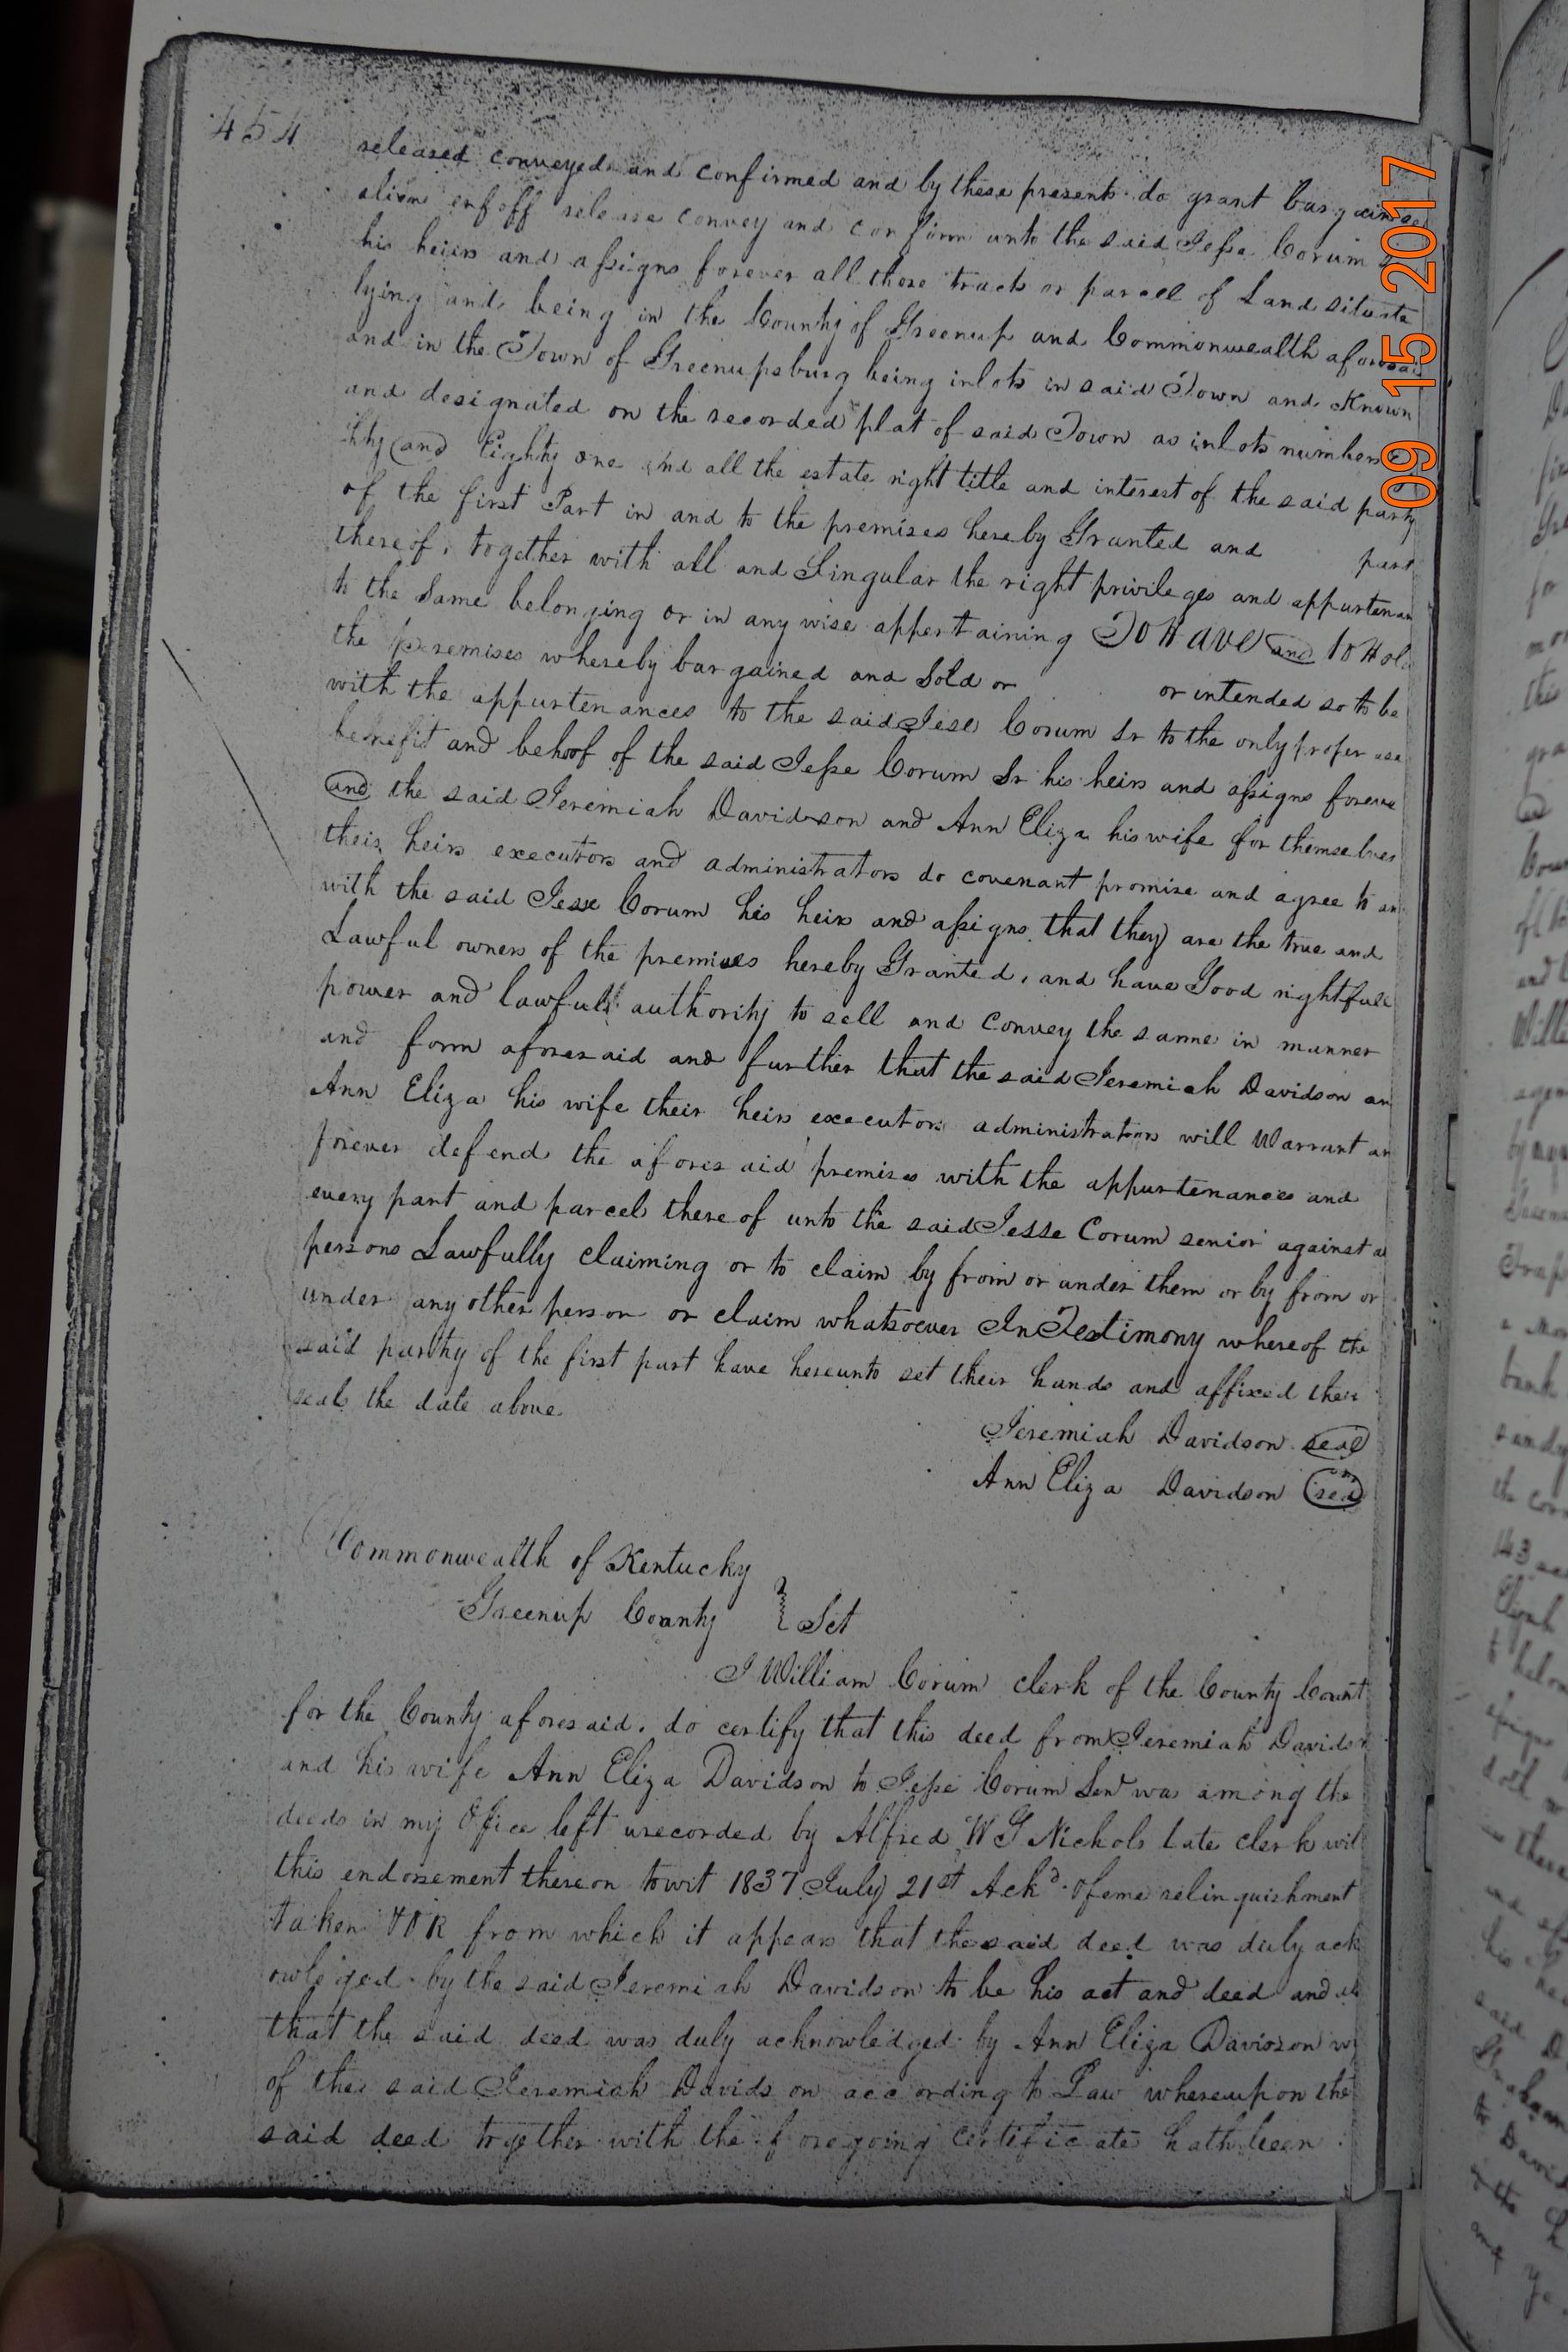 454
released conveyed and confirmed and by these presents do grant bargain
alien enfoff release convey and confirm unto the said Jesse Corum
his heirs and assigns forever all those tracts or parcell of Land situate
lying and being in the County of Greenup and Commonwealth aforesaid
and in the Town of Greenupsburg being inlots in said Town and Known
and designated on the recorded plat of said Town as inlots numbers
and Eighty one and all the estate right title and interest of the said party
of the first Part in and to the premises hereby Granted and part
thereof, together with all and Singular the right privileges and appurtenan
to the Same belonging or in any wise appertaining To Have and to Hold
the premises whereby bargained and Sold or or intended so to be
with the appurtenances to the said Jese Corum Sr to the only proper use
benefit and behoof of the said Jesse Corum Sr his heirs and assigns foreve
and the said Jeremiah Davidson and Ann Eliza his wife for themselves
their heirs executors and administrators do covenant promise and agree to an
with the said Jesse Corum his heirs and assigns that they are the true and
Lawful owners of the premises hereby Granted, and have Good rightfull
power and lawfull authority to sell and convey the same in manner
and form aforesaid and further that the said Jeremiah Davidson an
Ann Eliza his wife their heirs executors administrators will Warrant an
forever defend the aforesaid premises with the appurtenances and
every part and parcel thereof unto the said Jesse Corum senior against a
persons Lawfully claiming or to claim by from or under them or by from or
under any other person or claim whatsoever In Testimony whereof the
said party of the first part have hereunto set their hands and affixed their
seals the date above
Jeremiah Davidson seal
Ann Eliza Davidson seal
Commonwealth of Kentucky
Greenup County } Sct
I William Corum clerk of the County Court
for the County aforesaid. do certify that this deed from Jeremiah Davidson
and his wife Ann Eliza Davidson to Jesse Corum Senr was among the
deeds in my Office left urecorded by Alfred W G Nichols late clerk wit
this endorsement thereon towit 1837 July 21st Ackd. & feme relinquishment
taken & O R from which it appears that the said deed was duly ack
owledged by the said Jeremiah Davidson to be his act and deed and al
that the said deed was duly acknowledged by Ann Eliza Davidson w
of the said Jeremiah Davidson according to Law whereupon the
said deed together with the foregoing certificate hath been
09 15 2017